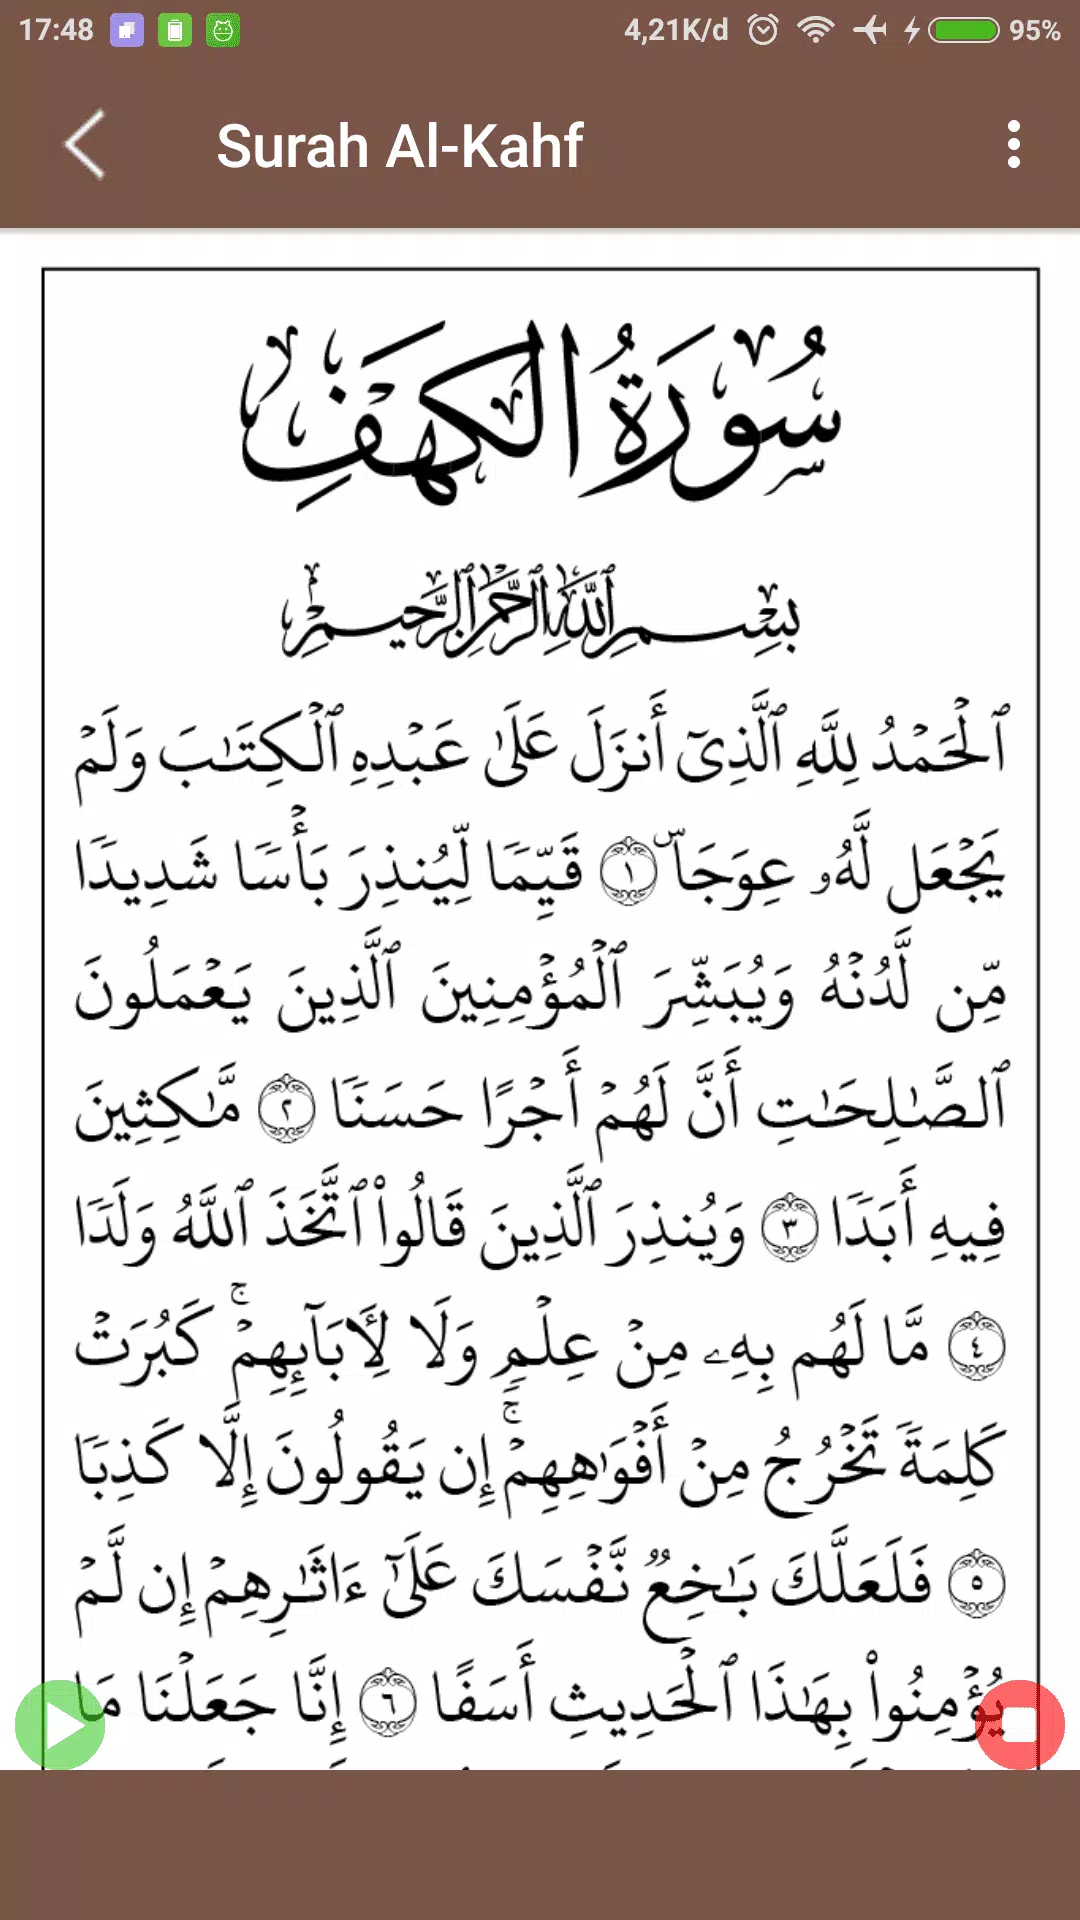 17:48 4,21K/d 95%
Surah Al-Kahf
سُورَةُ الكَهْفِ
بِسْمِ ٱللَّهِ ٱلرَّحْمَٰنِ ٱلرَّحِيمِ
ٱلْحَمْدُ لِلَّهِ ٱلَّذِىٓ أَنزَلَ عَلَىٰ عَبْدِهِ ٱلْكِتَٰبَ وَلَمْ
يَجْعَل لَّهُۥ عِوَجَاۜ ١ قَيِّمًا لِّيُنذِرَ بَأْسًا شَدِيدًا
مِّن لَّدُنْهُ وَيُبَشِّرَ ٱلْمُؤْمِنِينَ ٱلَّذِينَ يَعْمَلُونَ
ٱلصَّٰلِحَٰتِ أَنَّ لَهُمْ أَجْرًا حَسَنًا ٢ مَّٰكِثِينَ
فِيهِ أَبَدًا ٣ وَيُنذِرَ ٱلَّذِينَ قَالُوا۟ ٱتَّخَذَ ٱللَّهُ وَلَدًا
٤ مَّا لَهُم بِهِۦ مِنْ عِلْمٍ وَلَا لِءَابَآئِهِمْ ۚ كَبُرَتْ
كَلِمَةً تَخْرُجُ مِنْ أَفْوَٰهِهِمْ ۚ إِن يَقُولُونَ إِلَّا كَذِبًا
٥ فَلَعَلَّكَ بَٰخِعٌ نَّفْسَكَ عَلَىٰٓ ءَاثَٰرِهِمْ إِن لَّمْ
يُؤْمِنُوا۟ بِهَٰذَا ٱلْحَدِيثِ أَسَفًا ٦ إِنَّا جَعَلْنَا مَا